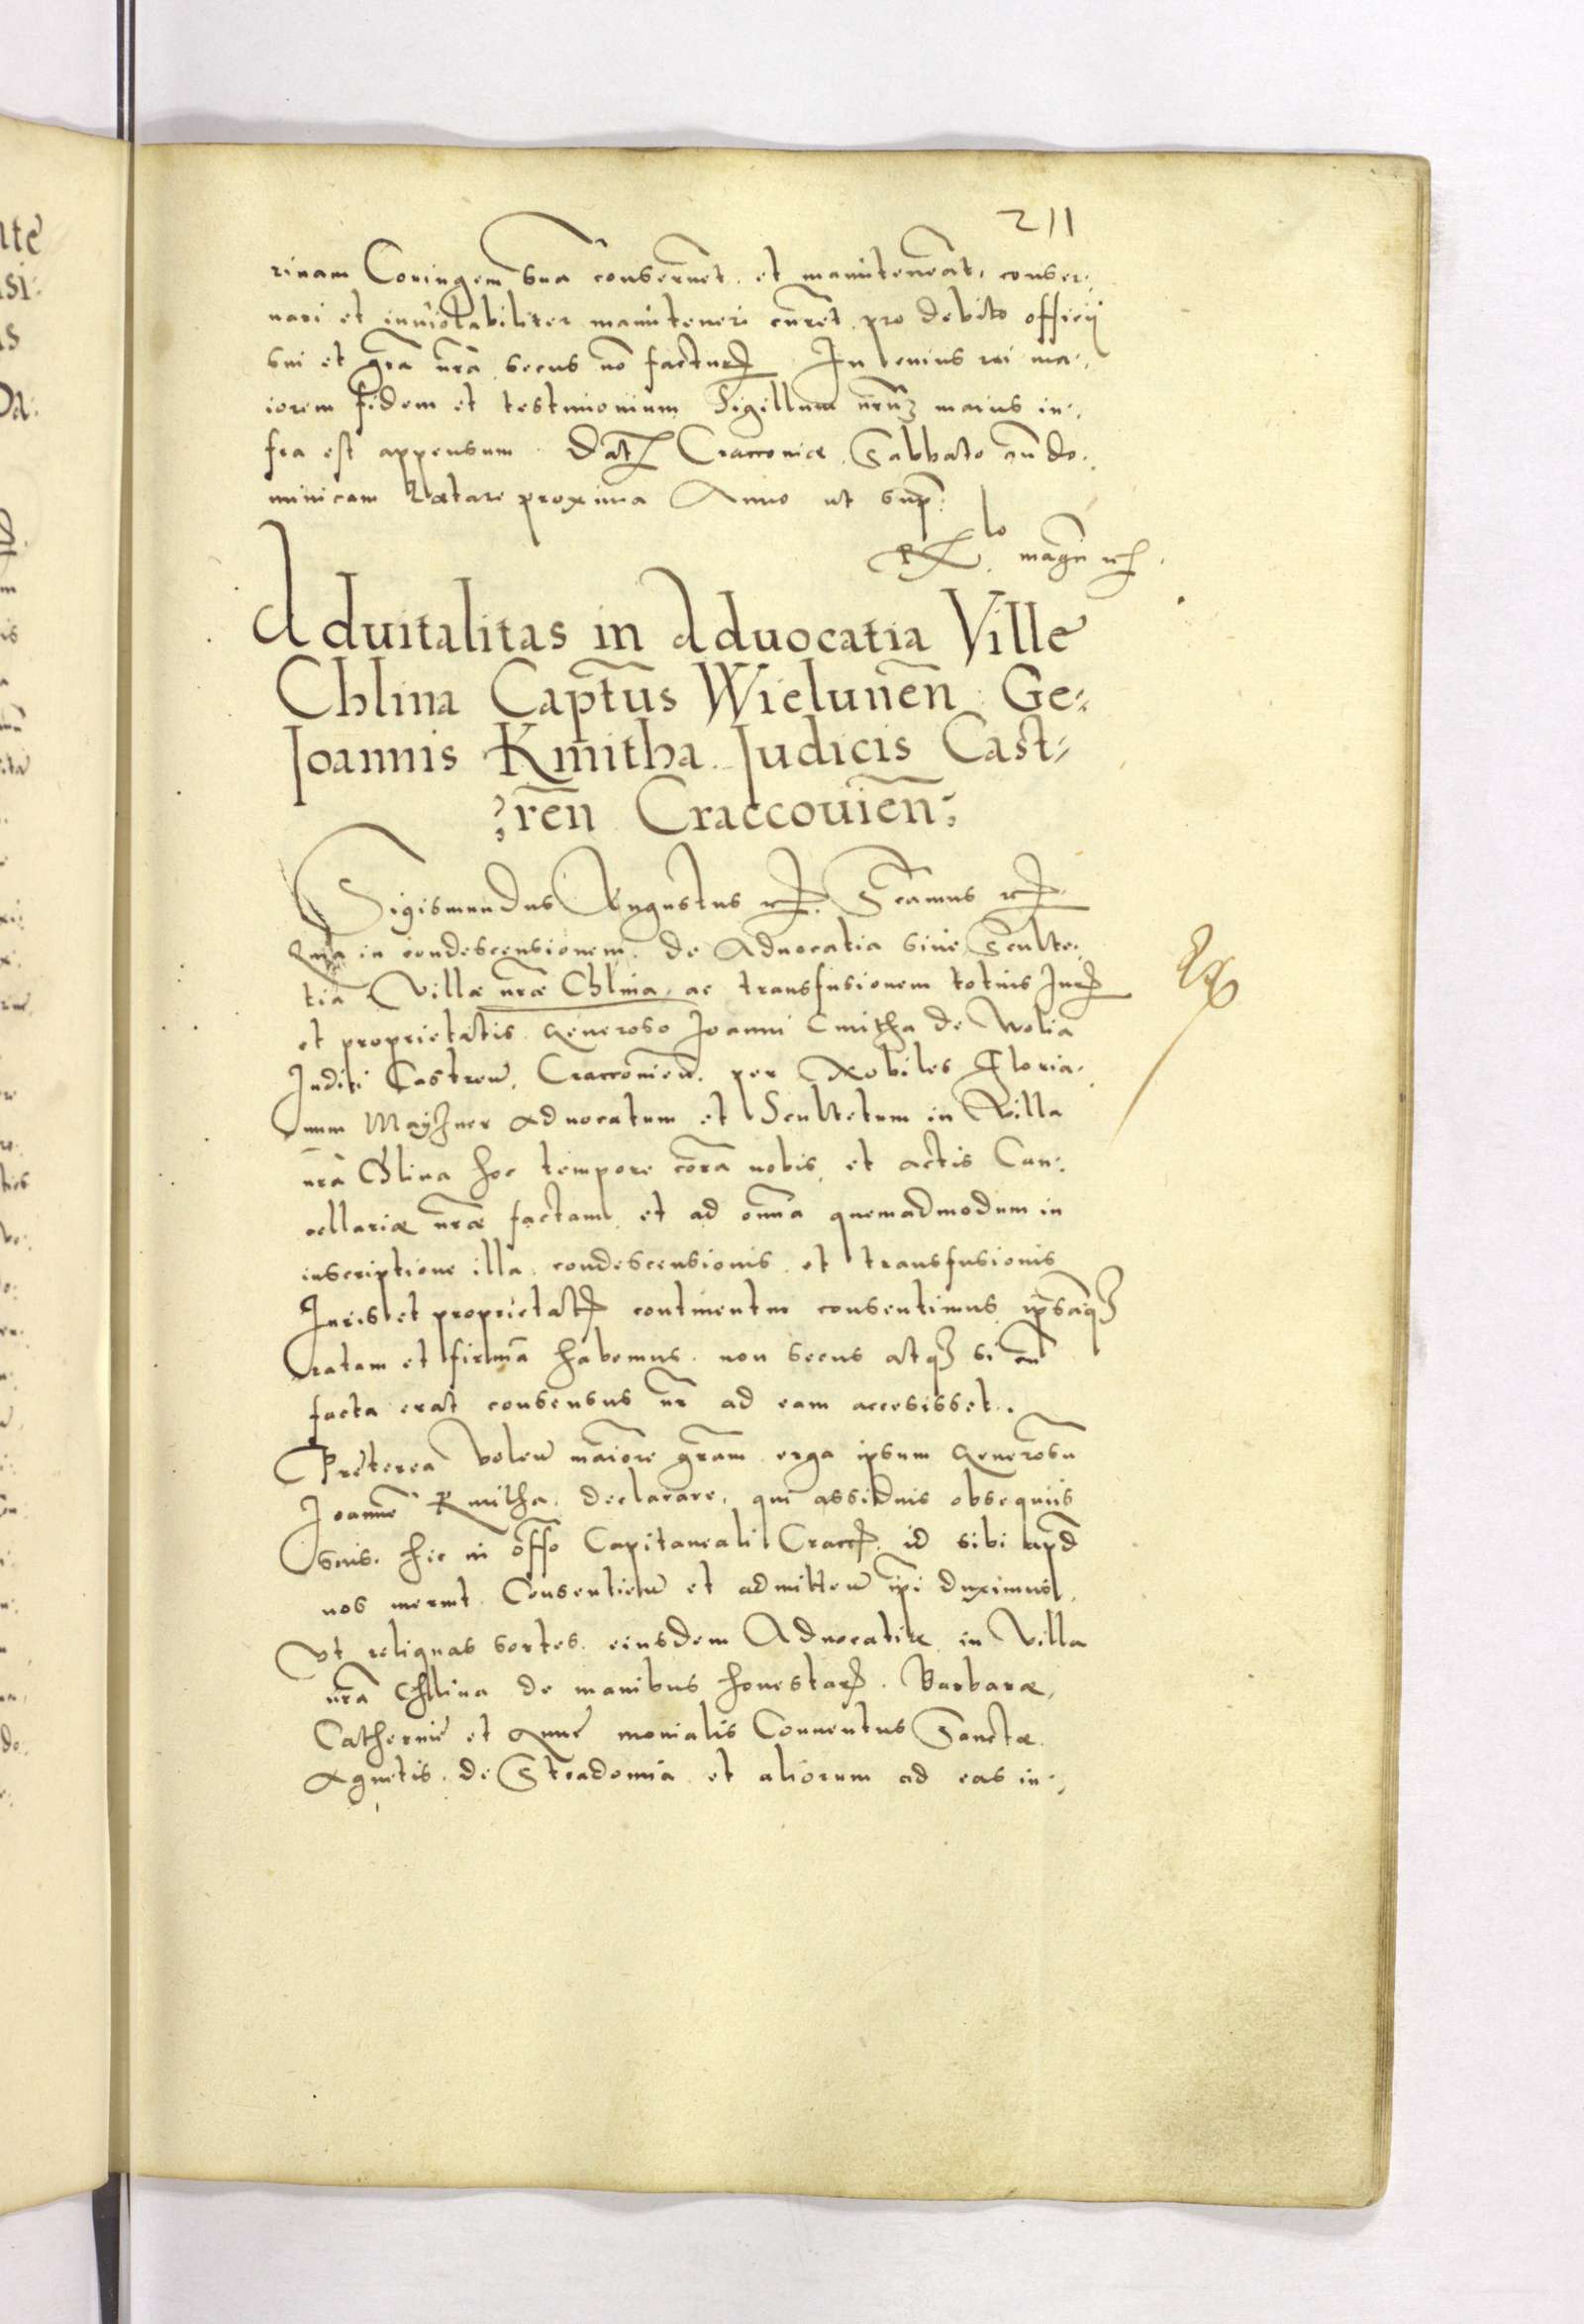 211
rinam Coniugem sua conservet et manuteneat, conser-
vari et inviolabiliter manuteneri curet pro debito officij
sui et gra nra secus no factur In cuius rei ma-
iorem fidem et testimonium Sigillum nrum maius in-
fra est appensum. Dat Craccoviæ Sabbato an do-
minicam Lætare proxima Anno ut sup:
magn
Aduitalitas in Aduocatia Ville
Chlina Captus Wielunen Ge-
Joannis Kmitha Judicis Cast-
ren Craccouien:
Sigismundus Augustus Scamus
Quia in condescensionem de Aduocatia siue Sculte-
tia Villæ nræ Chlina, ac transfusionem totius Jur
et proprietatis Generoso Joanni Cmitha de Wolia
Judici Castren, Craccouien. per Nobiles Floria-
num Mayzner Aduocatum et Scultetum in Villa
nra Chlina hoc tempore cora nobis et actis Can-
cellariæ nræ factam et ad omnia quemadmodum in
inscriptione illa condescensionis et transfusionis
Juris et proprietat continentur consentimus ipsaq
ratam et firma habemus non secus atq si cu
facta erat consensus nr ad eam accesisset.
Preterea volen maiore gram erga ipsum Generosu
Joanne Kmitha declarare, qui assiduis obsequiis
suis hic in offo Capitaneali Cracc id sibi apud
nos meruit Consentien et admitten ipi duximus
Vt reliquas sortes eiusdem Aduocatiæ in Villa
nra Chlina de manibus honestar Barbaræ,
Catherine et Anne monialis Conuentus Sanctæ
Agnetis de Stradomia et aliorum ad eas in-